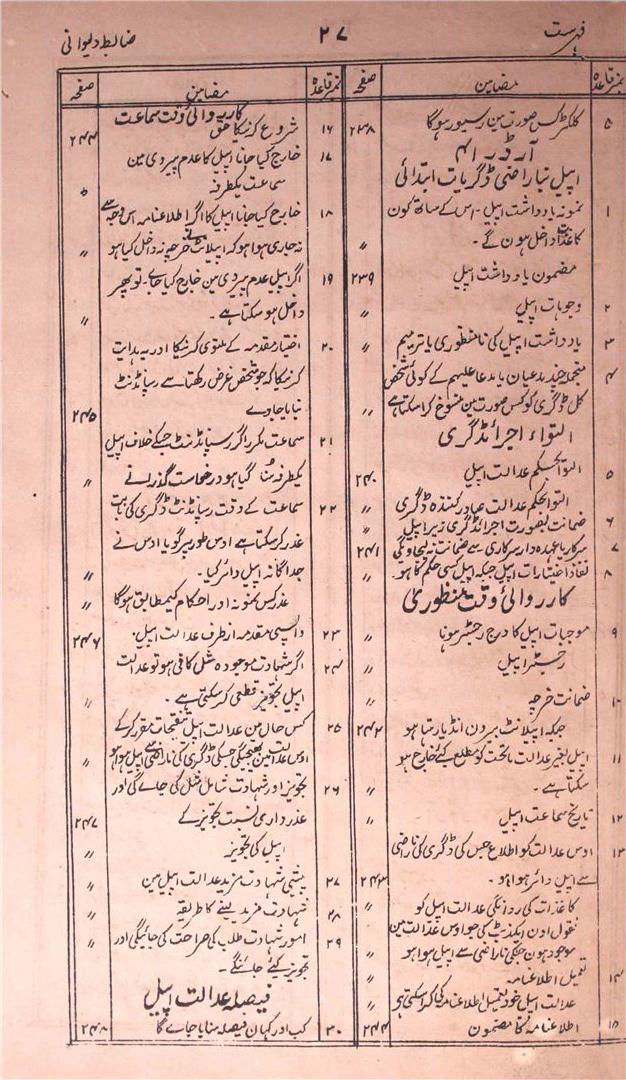 فہرست ۲۷ ضابطہ دیوانی
نمبر قاعدہ مضامین صفحہ
۵ کلکٹر کس صورت مین رسیور ہوگا ۲۳۸
آرڈر ۴۱
اپیل بناراضی ڈگریات ابتدائی
۱ نمونہ یادداشت اپیل۔ اس کے ساتھ کون
کاغذات داخل ہون گے۔ 〃
مضمون یادداشت اپیل ۲۳۹
۲ وجوہات اپیل 〃
۳ یادداشت اپیل کی نامنظوری یا ترمیم 〃
۴ منجملہ چند مدعیان یا مدعا علیہم کے کوئی شخص
کل ڈگری کو کس صورت مین منسوخ کرا سکتا ہے 〃
التواء اجرائے ڈگری
۵ التوا بحکم عدالت اپیل ۲۴۰
التوا بحکم عدالت صادر کنندہ ڈگری 〃
۶ ضمانت بصورت اجرائے ڈگری زیر اپیل 〃
۷ سرکار یا عہدہ دار سرکاری سے ضمانت نہ لیجاویگی ۲۴۱
۸ نفاذ اختیارات اپیل جبکہ اپیل کسی حکم کا ہو۔ 〃
کارروائی وقت منظوری
۹ موجبات اپیل کا درج رجسٹر ہونا 〃
رجسٹر اپیل 〃
۱۰ ضمانت خرچہ 〃
جبکہ اپیلانٹ بیرون انڈیا رہتا ہو ۲۴۲
۱۱ اپیل بغیر عدالت ماتحت کو مطلع کئے خارج ہو
سکتا ہے۔ 〃
۱۲ تاریخ سماعت اپیل 〃
۱۳ اوس عدالت کو اطلاع جس کی ڈگری کی ناراضی
سے اپیل دائر ہوا ہو۔ ۲۴۳
کاغذات کی روانگی عدالت اپیل کو 〃
نقول اون کی جو اوس عدالت مین
موجود ہون جسکی ناراضی سے اپیل ہوا ہو 〃
۱۴ تعمیل اطلاعنامہ 〃
عدالت اپیل خود تعمیل اطلاعنامہ کی کرا سکتی ہے 〃
۱۵ اطلاعنامہ کا مضمون ۲۴۴
نمبر قاعدہ مضامین صفحہ
کارروائی وقت سماعت
۱۶ شروع کرنیکا حق ۲۴۴
۱۷ خارج کیا جانا اپیل کا عدم پیروی مین
سماعت یکطرفہ
۱۸ خارج کیا جانا اپیل کا اگر اطلاعنامہ اس وجہ سے
نہ جاری ہوا ہو کہ اپیلانٹ نے خرچہ نہ داخل کیا ہو 〃
۱۹ اگر اپیل عدم پیروی مین خارج کیا جائے۔ تو پھر
داخل ہو سکتا ہے۔ 〃
۲۰ اختیار مقدمہ کے ملتوی کرنیکا اور یہ ہدایت
کرنیکا کہ جو شخص غرض رکھتا ہے رسپانڈنٹ
بنایا جاوے ۲۴۵
۲۱ سماعت مکرر اگر رسپانڈنٹ جسکے خلاف اپیل
یکطرفہ سنا گیا ہو درخواست گذرانے 〃
۲۲ سماعت کے وقت رسپانڈنٹ ڈگری کی بابت
عذر کر سکتا ہے اوس طور پر گویا اوس نے
جداگانہ اپیل دائر کیا۔ 〃
عذر کس نمونہ اور احکام کیمطابق ہوگا 〃
۲۳ واپسی مقدمہ از طرف عدالت اپیل۔ ۲۴۶
۲۴ اگر شہادت موجودہ مثل کافی ہو تو عدالت
اپیل تجویز قطعی کر سکتی ہے۔ 〃
۲۵ کس حال مین عدالت اپیل تنقیحات مقرر کرکے
اوس عدالت مین بھیجیگی جسکی ڈگری کی ناراضی سے اپیل ہوا ہو 〃
۲۶ تجویز اور شہادت شامل مثل کی جاے گی اور
عذرداری نسبت تجویز کے ۲۴۷
اپیل کی تجویز 〃
۲۷ پیشی شہادت مزید عدالت اپیل مین 〃
۲۸ شہادت مزید لینے کا طریقہ 〃
۲۹ امور شہادت طلب کی صراحت کی جائیگی اور 〃
تجویز کیئے جائنگے۔
فیصلہ عدالت اپیل
۳۰ کب اور کہان فیصلہ سنایا جاے گا ۲۴۸